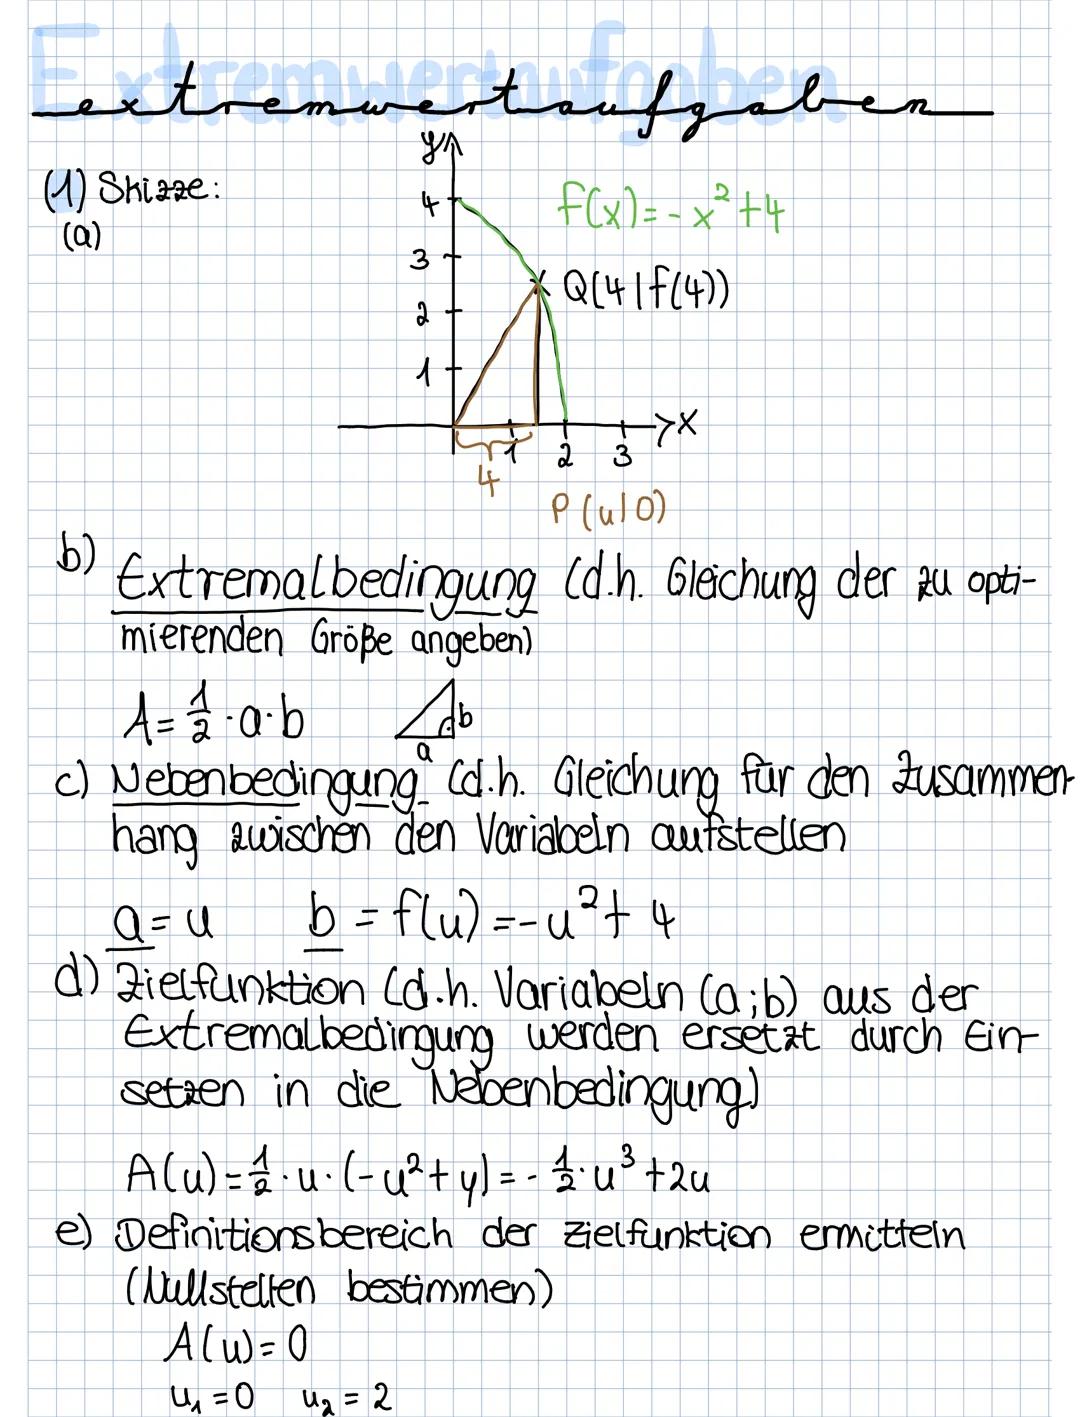 Extremwertaufgaben
extremwertaufgaben
(1) Skizze:
(a)
y
4
3
2
1
f(x)=-x²+4
Q(4|f(4))
1 2 3
x
4
P(u|0)
b) Extremalbedingung (d.h. Gleichung der zu opti-
mierenden Größe angeben)
A=½·a·b
b
a
c) Nebenbedingung (d.h. Gleichung für den Zusammen-
hang zwischen den Variabeln aufstellen
a=u b=f(u)=-u²+4
d) Zielfunktion (d.h. Variabeln (a;b) aus der
Extremalbedingung werden ersetzt durch Ein-
setzen in die Nebenbedingung)
A(u)=½·u·(-u²+y)=-½·u³+2u
e) Definitionsbereich der Zielfunktion ermitteln
(Nullstellen bestimmen)
A(u)=0
u₁=0 u₂=2